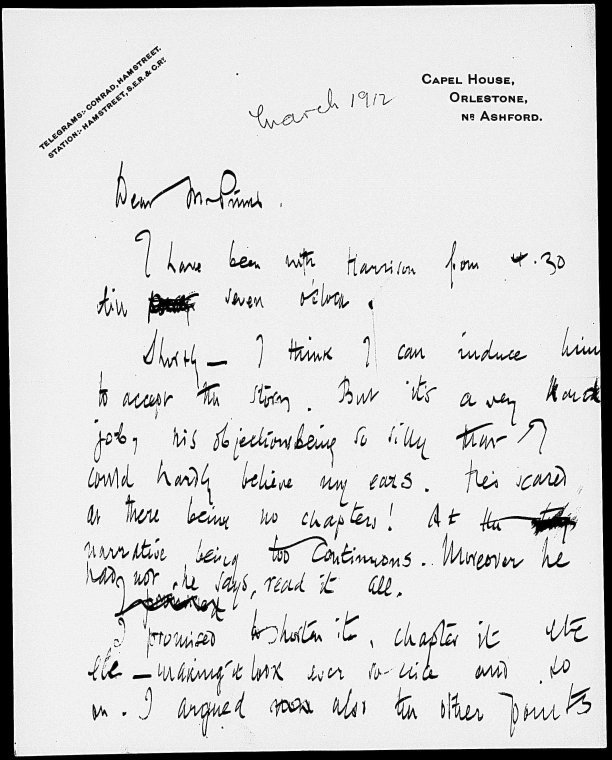 TELEGRAMS:- CONRAD, HAMSTREET.
STATION:- HAMSTREET, S.E.R. & C.RY.
CAPEL HOUSE,
ORLESTONE,
NR ASHFORD.
March 1912
Dear Mr Pinker.
I have been with Harrison from 4.30
till seven o'clock.
Shortly — I think I can induce him
to accept the story. But it's a very hard
job, his objections being so silly that I
could hardly believe my ears. He's scared
at there being no chapters! At the
narrative being too continuous.. Moreover he
had not, he says, read it all.
I promised
I promised to shorten it, chapter it etc
etc — making it look ever so nice and so
on. I argued also the other points